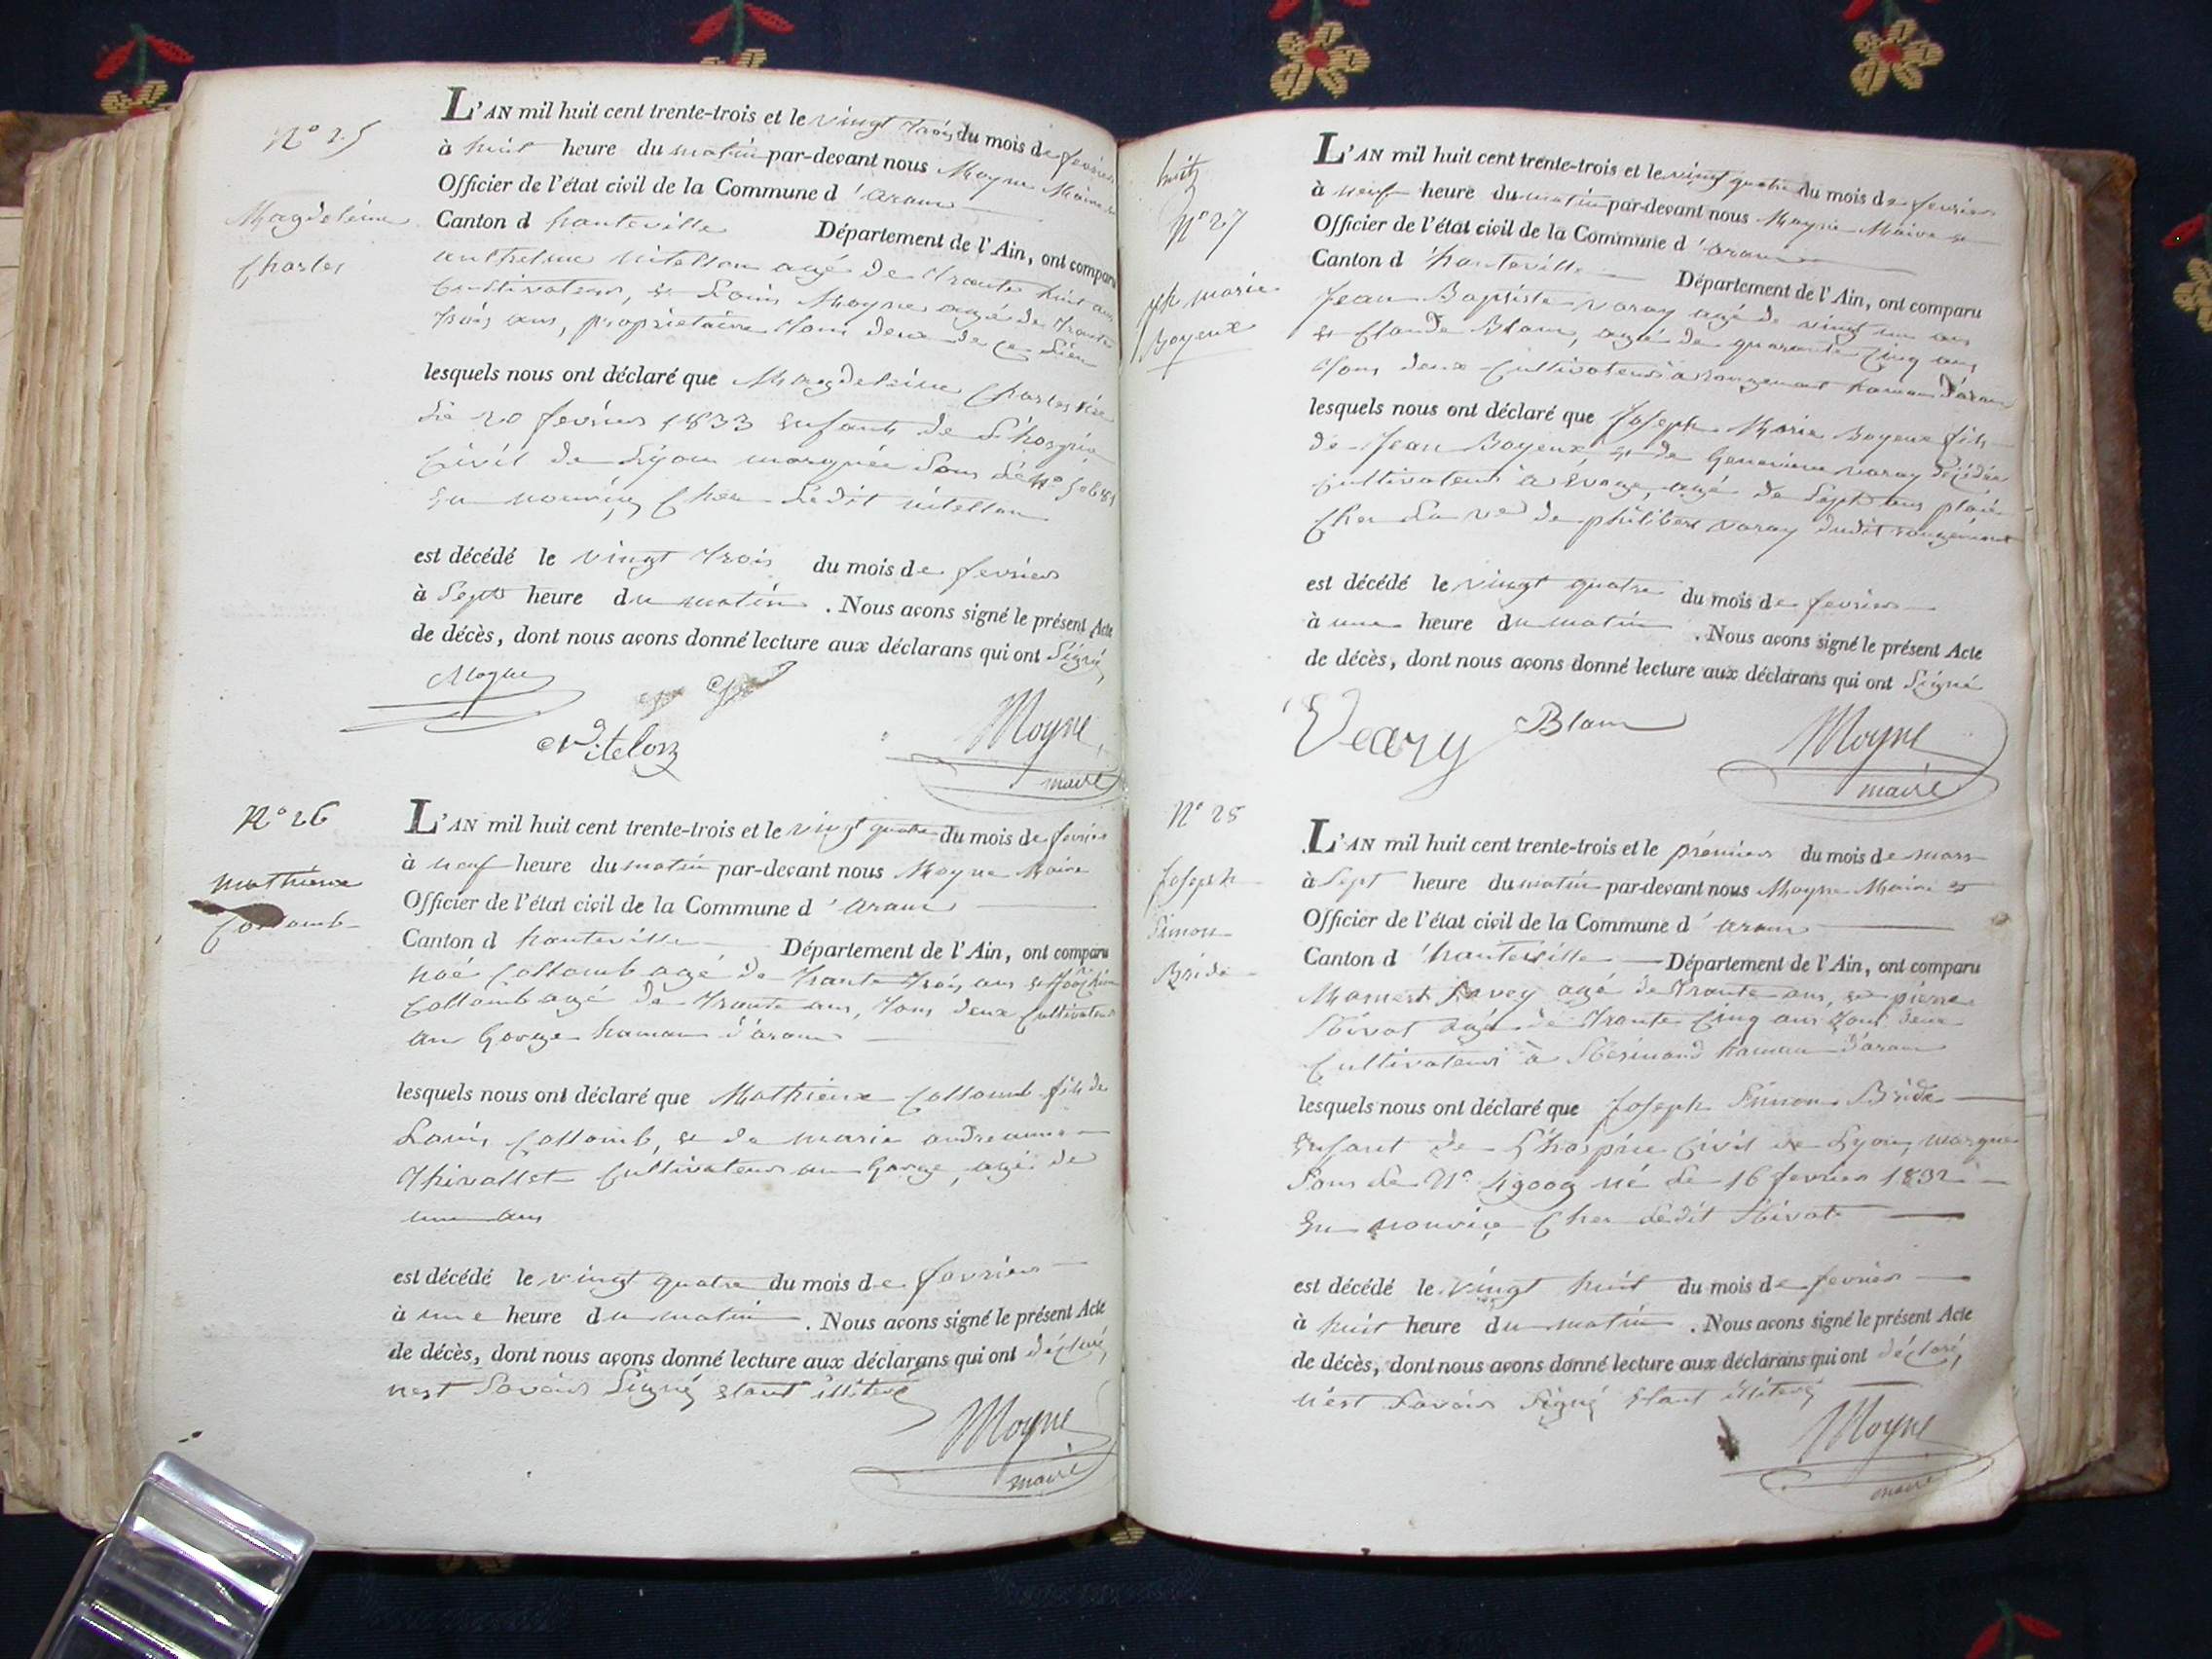 N° 25
Magdeleine
Charles
L'AN mil huit cent trente-trois et le vingt trois du mois de fevrier
à huit heure du matin par-devant nous Moyne Maire
Officier de l'état civil de la Commune d'aranc
Canton d hauteville Département de l'Ain, ont comparu
anthelme vitellon agé de trante huit ans
Cultivateur, et Louis Moyne agé de trante
trois ans, proprietaire tous deux de ce Lieu
lesquels nous ont déclaré que Magdeleine Charles née
Le 20 fevrier 1833 Enfant de L'hospice
Civil de Lyon marquée Sous Le N°
En nourice Chez Ledit vitellon
est décédé le vingt trois du mois de fevrier
à Sept heure du matin . Nous avons signé le présent Acte
de décès, dont nous avons donné lecture aux déclarans qui ont Signé
Moyne
Vitelon
Moyne
maire
N° 26
Mathieux
Collomb
L'AN mil huit cent trente-trois et le vingt quatre du mois de fevrier
à neuf heure du matin par-devant nous Moyne Maire
Officier de l'état civil de la Commune d'aranc
Canton d hauteville Département de l'Ain, ont comparu
noé Collomb agé de trante trois ans et
Collomb agé de trante ans, tous deux Cultivateur
au Gorge hamau d'aranc
lesquels nous ont déclaré que Mathieux Collomb fils de
Louis Collomb, et de marie andreanne
Thivollet Cultivateur au Gorge, agé de
un ans
est décédé le vingt quatre du mois de fevrier
à une heure du matin . Nous avons signé le présent Acte
de décès, dont nous avons donné lecture aux déclarans qui ont déclaré,
nest Savoir Signé etant illiteré
Moyne
maire
huit
N° 27
jph marie
Boyeux
L'AN mil huit cent trente-trois et le vingt quatre du mois de fevrier
à neuf heure du matin par-devant nous Moyne Maire et
Officier de l'état civil de la Commune d'aranc
Canton d'hauteville Département de l'Ain, ont comparu
Jean Baptiste varay agé de vingt un ans
et Claude Blanc, agé de quarante Cinq ans
tous deux Cultivateurs à rougemont hamau d'aranc
lesquels nous ont déclaré que Joseph Marie Boyeux fils
de Jean Boyeux, et de Genevieve varay décédée
Cultivateur à Evoge, agé de Sept ans placé
Chez La ve de philibert varay dudit rougemont
est décédé le vingt quatre du mois de fevrier
à une heure du matin . Nous avons signé le présent Acte
de décès, dont nous avons donné lecture aux déclarans qui ont Signé
Veary Blanc
Moyne
maire
N° 28
Joseph
Simon
Bride
L'AN mil huit cent trente-trois et le prémier du mois de mars
à Sept heure du matin par-devant nous Moyne Maire et
Officier de l'état civil de la Commune d'aranc
Canton d'hauteville Département de l'Ain, ont comparu
Mamert Savey agé de trante ans, et pierre
agé de trante Cinq ans tous deux
Cultivateurs à hamau d'aranc
lesquels nous ont déclaré que Joseph Simon Bride
Enfant de L'hospice Civil de Lyon, marqué
Sous Le N° 49009 né Le 16 fevrier 1832
En nourice Chez Ledit
est décédé le vingt huit du mois de fevrier
à huit heure du matin . Nous avons signé le présent Acte
de décès, dont nous avons donné lecture aux déclarans qui ont déclaré,
n'est Savoir Signé Etant illiteré
Moyne
maire